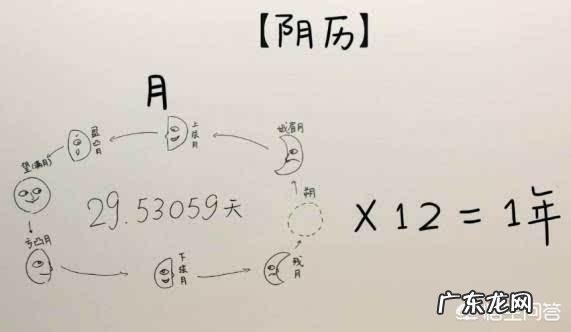 【阴历】
月
上弦月
盈凸月
峨眉月
望(满月)
朔
29.53059天
X 12 = 1年
亏凸月
下弦月
残月
广东龙网